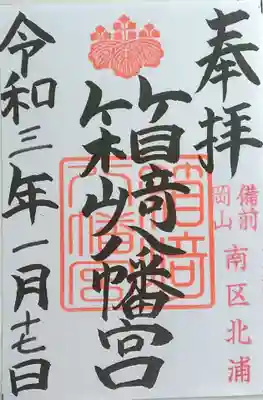 奉拝
備前
岡山
南区北浦
箱崎八幡宮
令和三年一月十七日